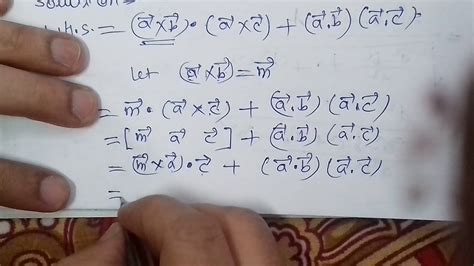 Solution:-
L.H.S. = (a⃗×b⃗)·(a⃗×c⃗)+(a⃗.b⃗)(a⃗.c⃗)
let (a⃗×b⃗)=m⃗
= m⃗·(a⃗×c⃗)+(a⃗.b⃗)(a⃗.c⃗)
=[m⃗ a⃗ c⃗]+(a⃗.b⃗)(a⃗.c⃗)
=(m⃗×a⃗)·c⃗+(a⃗.b⃗)(a⃗.c⃗)
=